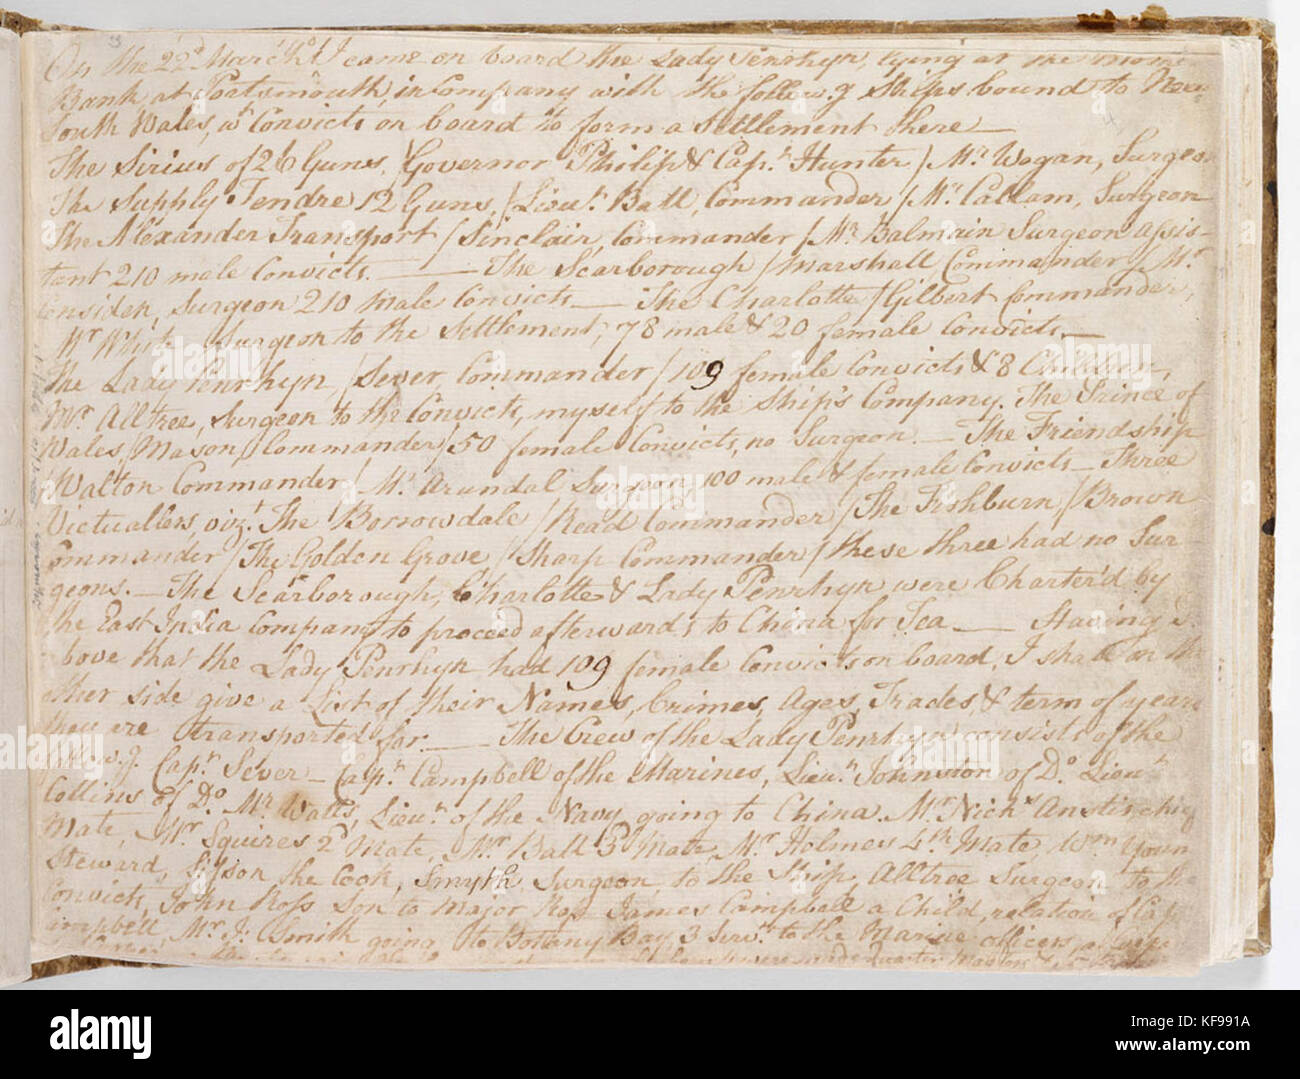 On the 22d March I came on board the Lady Penrhyn, lying at the
Bank at Portsmouth, in Company with the follow.g Ships bound to New
South Wales, wt Convicts on board to form a Settlement there —
The Sirius of 26 Guns, Governor Philip & Capn Hunter / Mr Wogan, Surgeon
The Supply Tendre 12 Guns, / Lieut. Ball, Commander / Mr. Callam, Surgeon
The Alexander Transport / Sinclair, Commander / Mr Balmain Surgeon assis-
tant 210 male Convicts. — The Scarborough / Marshall Commander / Mr
Considen, Surgeon 210 Male Convicts — The Charlotte / Gilbert Commander,
Mr White Surgeon to the Settlement, 78 male & 20 female Convicts. —
The Lady Penrhyn, / Sever, Commander / 109 female Convicts & 8 Children,
Mr Alltree, Surgeon to the Convicts, myself to the Ship's Company. The Prince of
Wales / Mason, Commander / 50 female Convicts, no Surgeon. — The Friendship
Walton Commander, Mr. Arundal Surgeon, 100 male & female Convicts — Three
Victuallers, vizt. The Borrowdale / Read Commander / The Fishburn / Brown
Commander / The Golden Grove / Sharp Commander / these three had no Sur-
geons. — The Scarborough, Charlotte & Lady Penrhyn were Charter'd by
the East India Company to proceed afterwards to China for Tea — Having a-
bove that the Lady Penrhyn had 109 female Convicts on board, I shall on the
other side give a List of their Names, Crimes, Ages, Trades, & term of years
they are transported for. — The Crew of the Lady Penrhyn consists of the
follow.g. Capn Sever — Capn Campbell of the Marines, Lieut Johnston of Do. Lieut
Collins of Do Mr Watts, Lieut of the Navy going to China Mr Nichs Anstis chief
Mate, Mr Squires 2d Mate, Mr Ball 3d Mate Mr Holmes 4th Mate, Wm Youn
Steward, the Cook, Smyth Surgeon to the Ship, Alltree Surgeon to the
Convicts, John Ross Son to Major Ross James Campbell a Child, relation of Cap
Campbell, Mr J: Smith going to Bottany Bay, 3 Servts to the Marine officers,
made Quarter Masters &
alamy
Image ID: KF991A
www.alamy.com